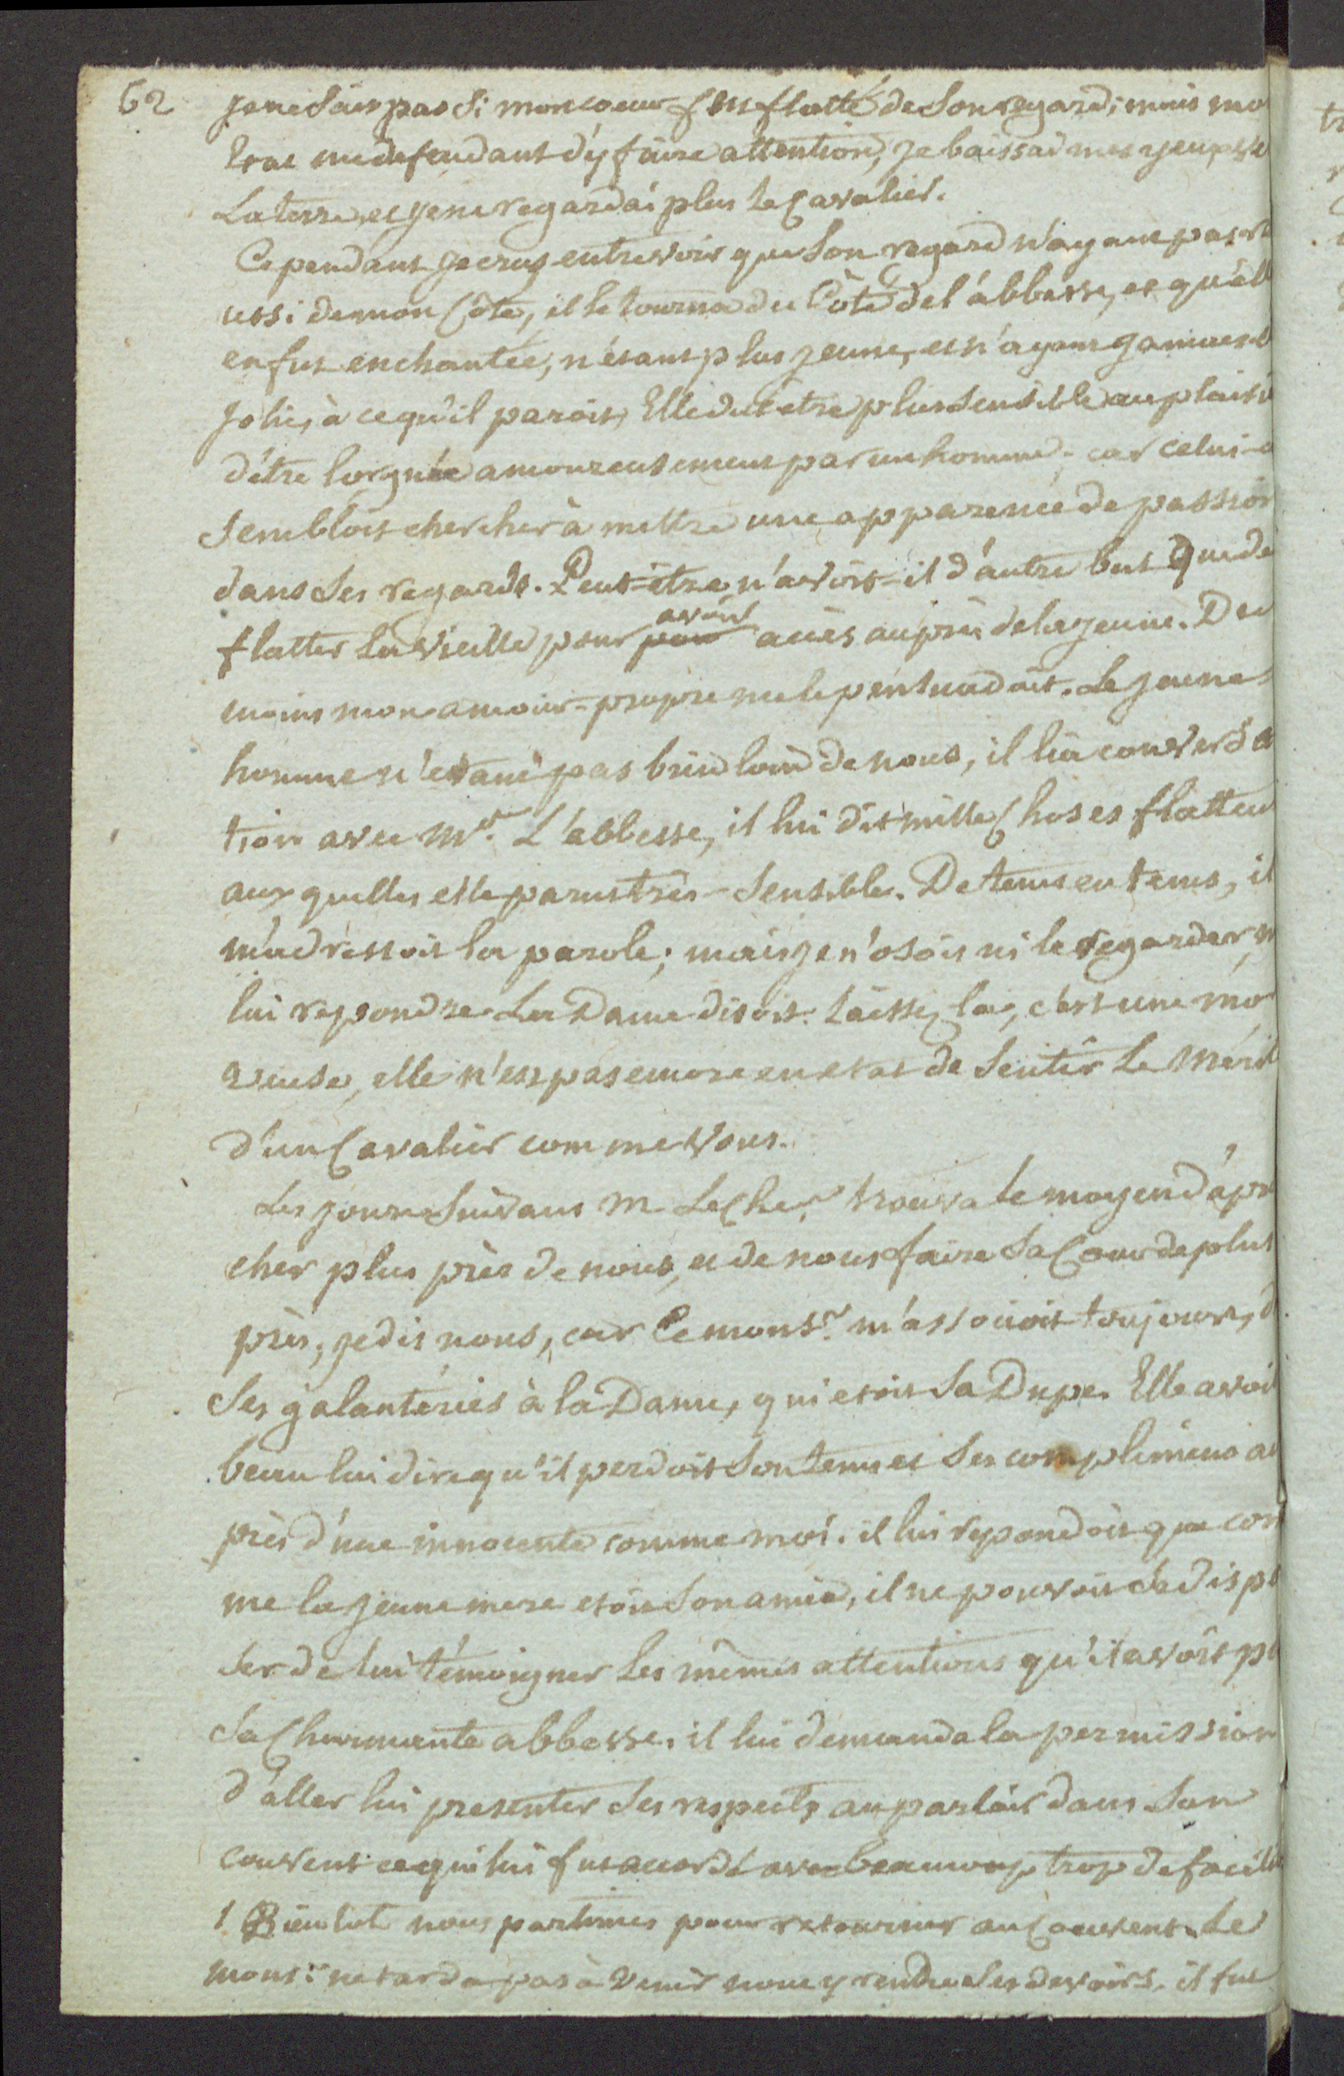 62
je ne sais pas si mon coeur fut flatté de son regard; mais mo
etat me defendant d'y faire attention, je baissad mes yeux ve
la terre, et je ne regardai plus le Cavalier.
Cependant je crus entrevoir que son regard n'ayant pas ré
ussi de mon Côté, il le tourna du Côté de l'abbesse, et qu'ell
en fut enchantée; n'étant plus jeune, et n'ayant jamais é
jolie, à ce qu'il paroit, Elle dut être plus sensible au plaisir
d'être lorgnée amoureusement par un homme; car celui-c
sembloit chercher à mettre une apparence de passion
dans ses regards. Peut-être n'avoit-il d'autre but que de
avoir
flatter la vieille pour pour accès auprès de la jeune. Du
moins mon amour-propre me le persuadoit. Le jeune
homme n'etant pas bien loin de nous, il lia conversa
tion avec Me. L'abbesse, il lui dit mille Choses flatteu
aux quelles elle parut très-sensible. De tems en tems, il
m'adressoit la parole; mais je n'osois ni le regarder, n
lui repondre. La Dame disoit: laissez la, c'est une mo
veuse, elle n'est pas encore en etat de sentir le mérit
d'un Cavalier comme vous.
Les jours suivans M. Le Cher. trouva le moyen d'apr
cher plus près de nous, et de nous faire sa Cour de plus
près, je dis nous, car ce monsr. m'associoit toujours, d
ses galanteries à la Dame, qui etoit sa Dupe. Elle avoit
beau lui dire qu'il perdoit son tems et ses complimens au
près d'une innocente comme moi. il lui repondoit que com
me la jeune mere etoit son amie, il ne pouvoit se dispe
ser de lui témoigner les mêmes attentions qu'il avoit po
sa Charmante abbesse. il lui demanda la permission
d'aller lui presenter ses respects au parloir dans son
couvent ce qui lui fut accordé avec beaucoup trop de facilit
1 Bientot nous partimes pour retourner au Couvent. Le
monsr. ne tarda pas à venir nous y rendre ses devoirs. il fut